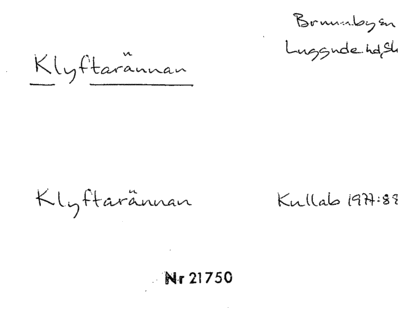 Klyftarännan
Brunnby sn
Luggude hd, Sk
Klyftarännan
Kullab 1977:88
Nr 21750